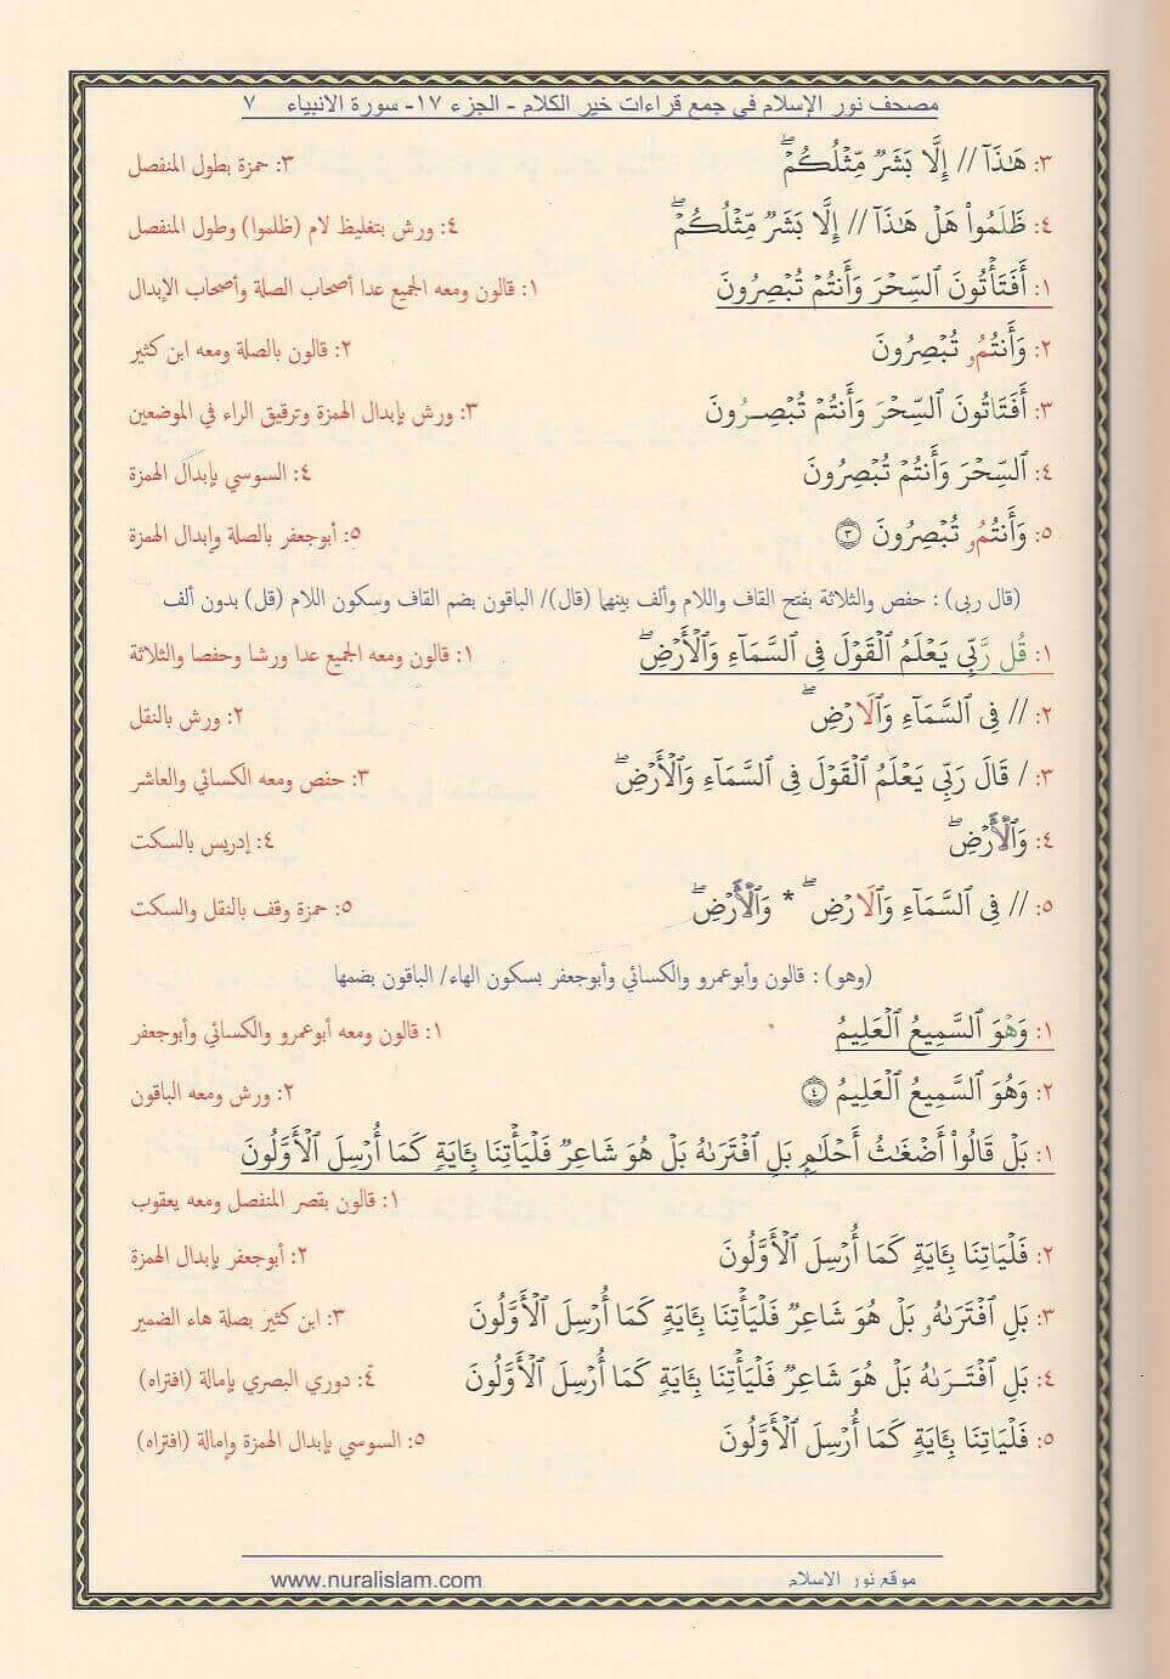 مصحف نور الإسلام في جمع قراءات خير الكلام - الجزء ١٧- سورة الانبياء ٧
٣: هَـٰذَآ // إِلَّا بَشَرٌ مِّثْلُكُمْ ۖ ٣: حمزة بطول المنفصل
٤: ظَلَمُوا۟ هَلْ هَـٰذَآ // إِلَّا بَشَرٌ مِّثْلُكُمْ ۖ ٤: ورش بتغليظ لام (ظلموا) وطول المنفصل
١: أَفَتَأْتُونَ ٱلسِّحْرَ وَأَنتُمْ تُبْصِرُونَ ١: قالون ومعه الجميع عدا أصحاب الصلة وأصحاب الإبدال
٢: وَأَنتُمُۥ تُبْصِرُونَ ٢: قالون بالصلة ومعه ابن كثير
٣: أَفَتَاتُونَ ٱلسِّحْرَ وَأَنتُمْ تُبْصِـرُونَ ٣: ورش بإبدال الهمزة وترقيق الراء في الموضعين
٤: ٱلسِّحْرَ وَأَنتُمْ تُبْصِرُونَ ٤: السوسي بإبدال الهمزة
٥: وَأَنتُمُۥ تُبْصِرُونَ ٣ ٥: أبوجعفر بالصلة وإبدال الهمزة
(قال ربى) : حفص والثلاثة بفتح القاف واللام وألف بينهما (قال)/ الباقون بضم القاف وسكون اللام (قل) بدون ألف
١: قُل رَّبِّى يَعْلَمُ ٱلْقَوْلَ فِى ٱلسَّمَآءِ وَٱلْأَرْضِ ۖ ١: قالون ومعه الجميع عدا ورشا وحفصا والثلاثة
٢: // فِى ٱلسَّمَآءِ وَٱلَارْضِ ۖ ٢: ورش بالنقل
٣: / قَالَ رَبِّى يَعْلَمُ ٱلْقَوْلَ فِى ٱلسَّمَآءِ وَٱلْأَرْضِ ۖ ٣: حفص ومعه الكسائي والعاشر
٤: وَٱلْأَرْضِ ۖ ٤: إدريس بالسكت
٥: // فِى ٱلسَّمَآءِ وَٱلَارْضِ ۖ * وَٱلْأَرْضِ ۖ ٥: حمزة وقف بالنقل والسكت
(وهو) : قالون وأبوعمرو والكسائي وأبوجعفر بسكون الهاء/ الباقون بضمها
١: وَهْوَ ٱلسَّمِيعُ ٱلْعَلِيمُ ١: قالون ومعه أبوعمرو والكسائي وأبوجعفر
٢: وَهُوَ ٱلسَّمِيعُ ٱلْعَلِيمُ ٤ ٢: ورش ومعه الباقون
١: بَلْ قَالُوٓا۟ أَضْغَـٰثُ أَحْلَـٰمٍۭ بَلِ ٱفْتَرَىٰهُ بَلْ هُوَ شَاعِرٌ فَلْيَأْتِنَا بِـَٔايَةٍ كَمَا أُرْسِلَ ٱلْأَوَّلُونَ
١: قالون بقصر المنفصل ومعه يعقوب
٢: فَلْيَاتِنَا بِـَٔايَةٍ كَمَا أُرْسِلَ ٱلْأَوَّلُونَ ٢: أبوجعفر بإبدال الهمزة
٣: بَلِ ٱفْتَرَىٰهُۥ بَلْ هُوَ شَاعِرٌ فَلْيَأْتِنَا بِـَٔايَةٍ كَمَا أُرْسِلَ ٱلْأَوَّلُونَ ٣: ابن كثير بصلة هاء الضمير
٤: بَلِ ٱفْتَـرَىٰهُ بَلْ هُوَ شَاعِرٌ فَلْيَأْتِنَا بِـَٔايَةٍ كَمَا أُرْسِلَ ٱلْأَوَّلُونَ ٤: دوري البصري بإمالة (افتراه)
٥: فَلْيَاتِنَا بِـَٔايَةٍ كَمَا أُرْسِلَ ٱلْأَوَّلُونَ ٥: السوسي بإبدال الهمزة وإمالة (افتراه)
موقع نور الاسلام www.nuralislam.com